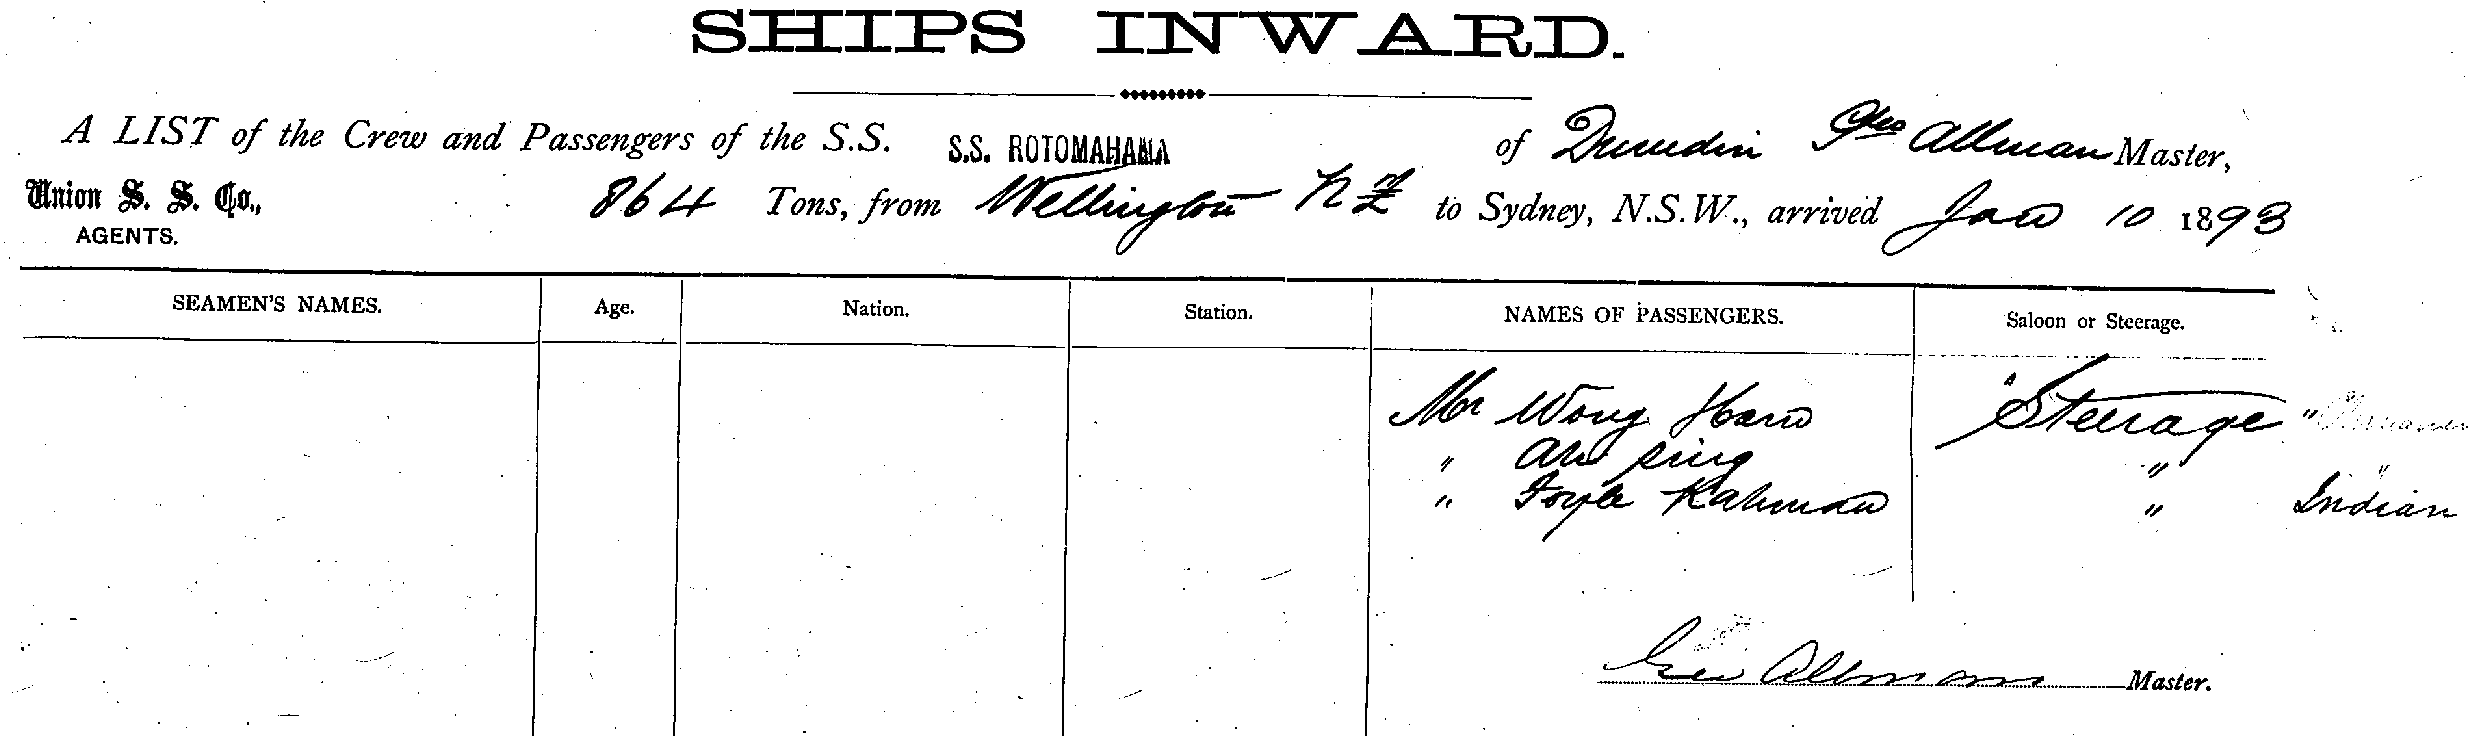 SHIPS INWARD.
A LIST of the Crew and Passengers of the S.S. S.S. ROTOMAHANA of Dunedin Geo Allman Master,
Union S. S. Co., 864 Tons, from Wellington NZ to Sydney, N.S.W., arrived Jan 10 1893
AGENTS.
SEAMEN'S NAMES. Age. Nation. Station. NAMES OF PASSENGERS. Saloon or Steerage.
Mr Wong Ham Steerage "
" Ah Sing " "
" Kahman " Indian
Geo Allman Master.